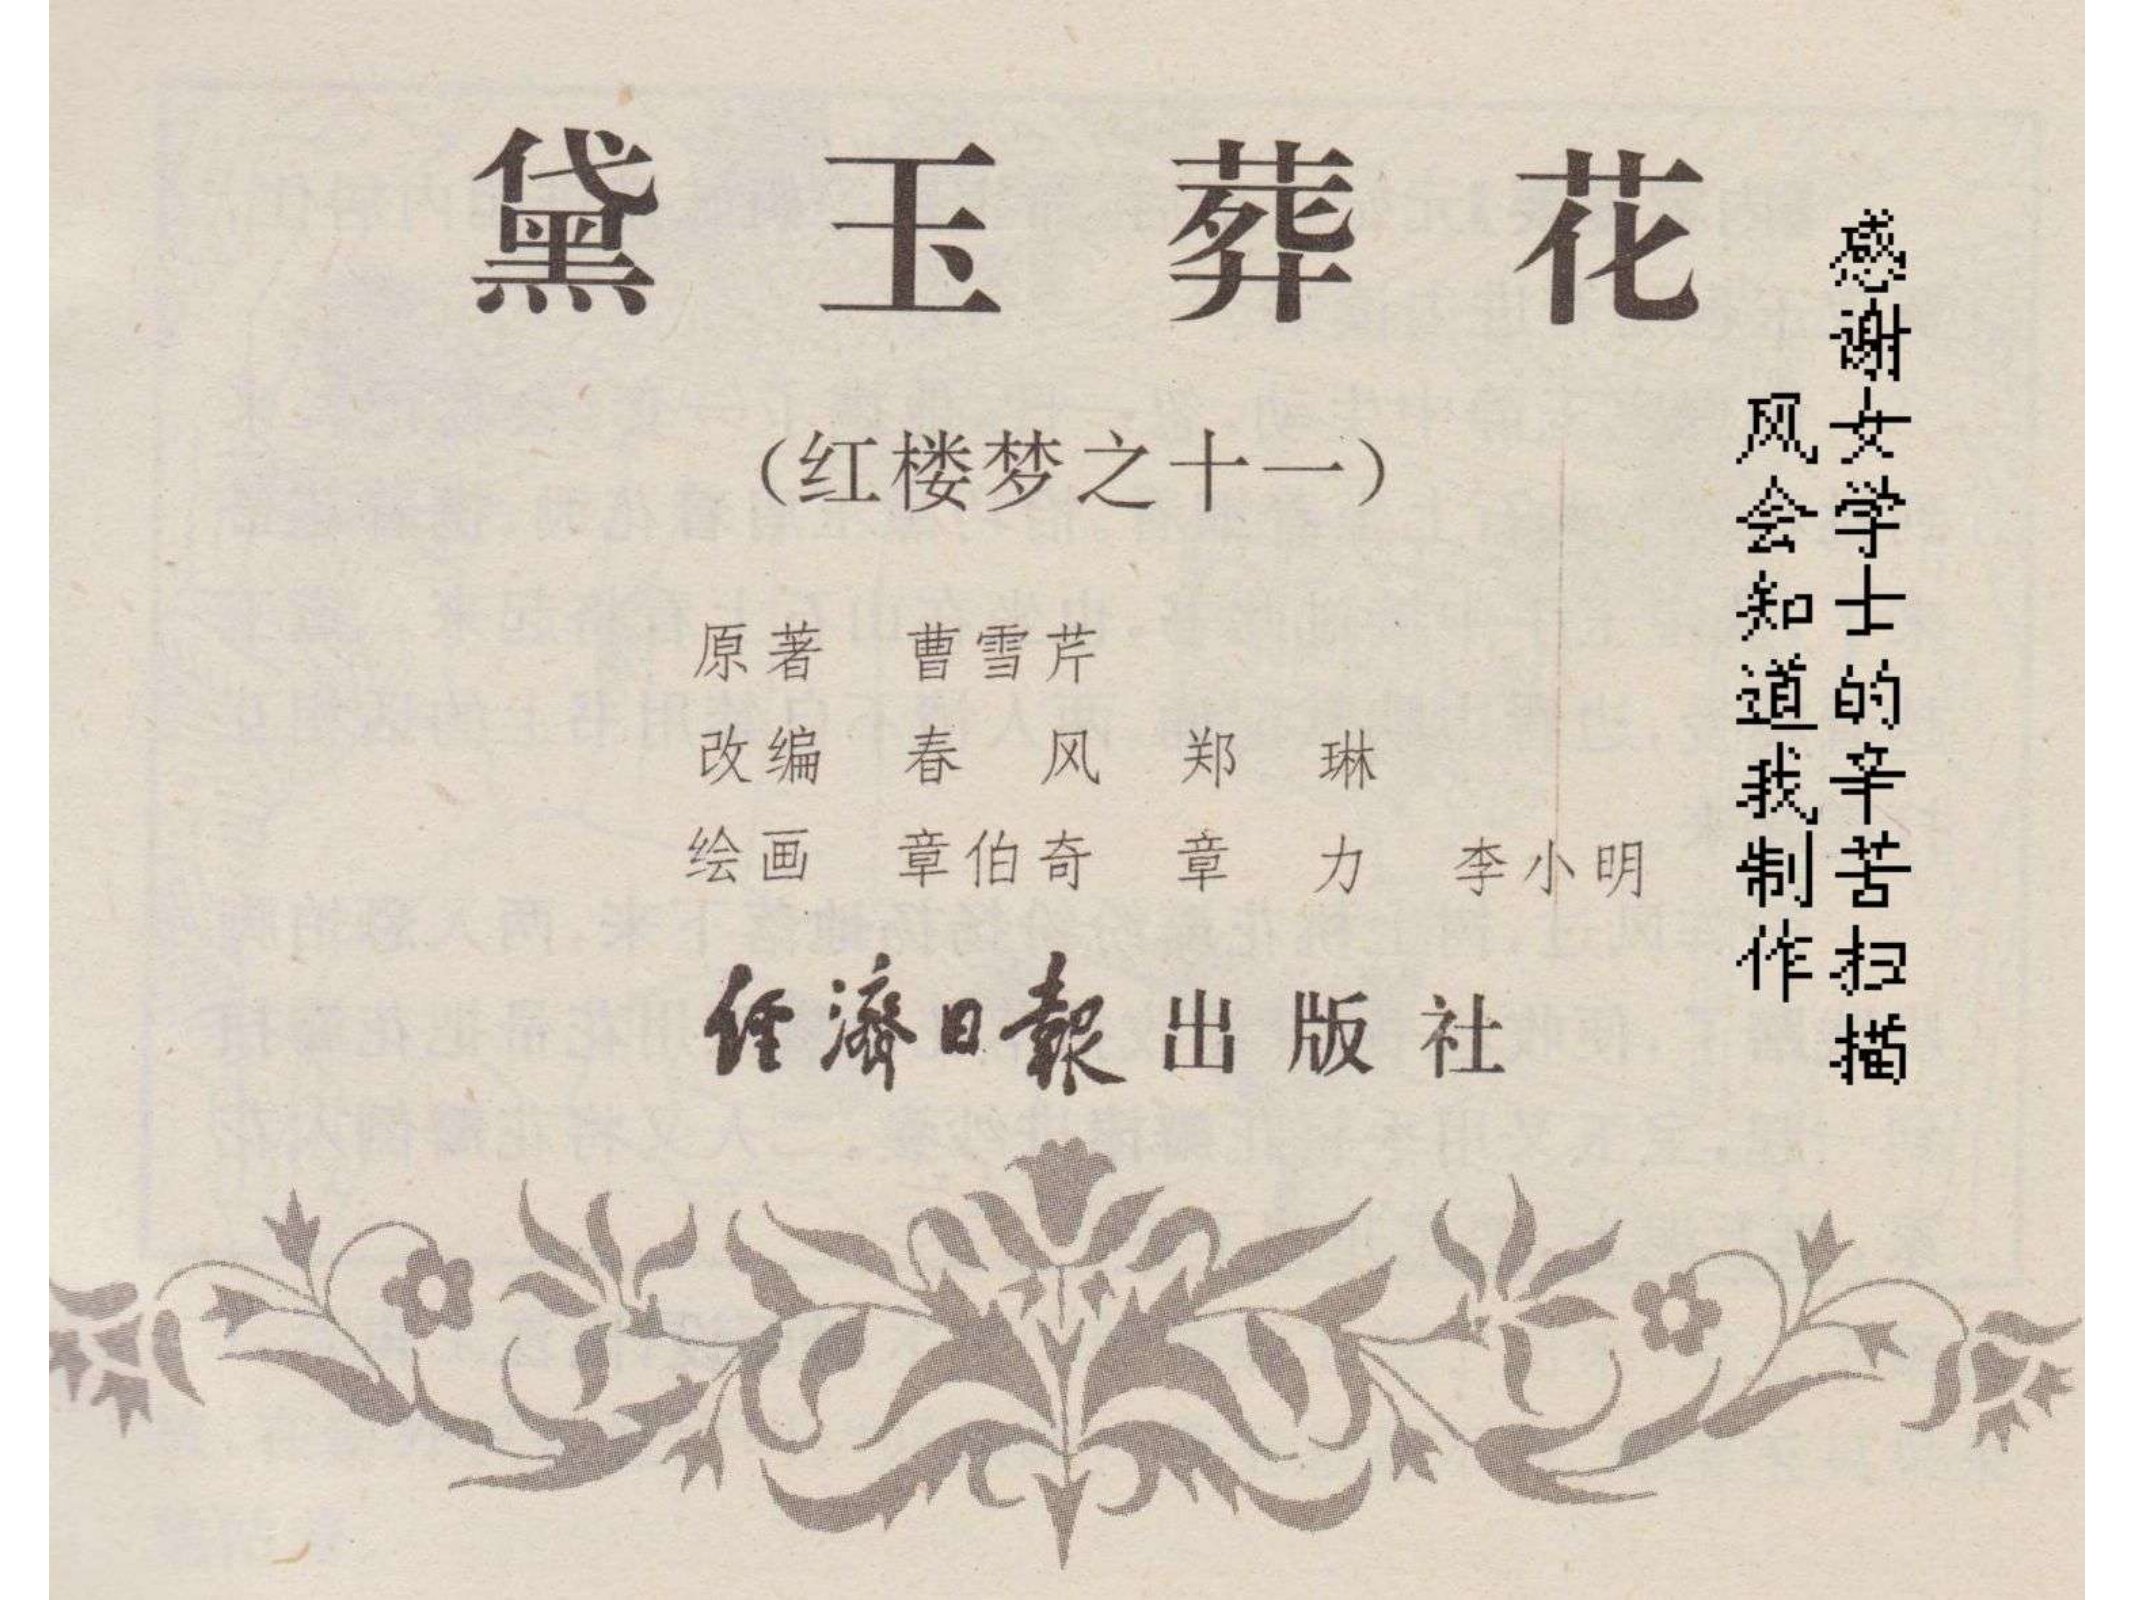 黛玉葬花
（红楼梦之十一）
原著 曹雪芹
改编 春风 郑琳
绘画 章伯奇 章力 李小明
经濟日報出版社
感谢女学士的辛苦扫描
风会知道我制作